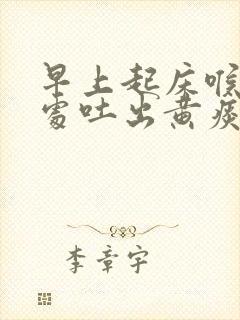 早上起床喉
处吐出黄痰
李章宇